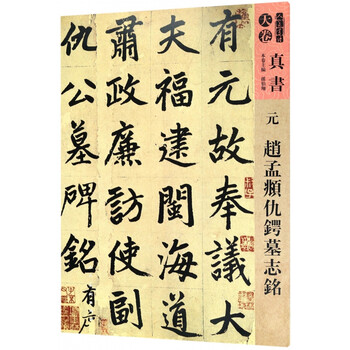 大卷
真書
元
趙孟頫仇鍔墓志銘
有元故奉議大
夫福建閩海道
肅政廉訪使副
仇公墓碑銘
有序